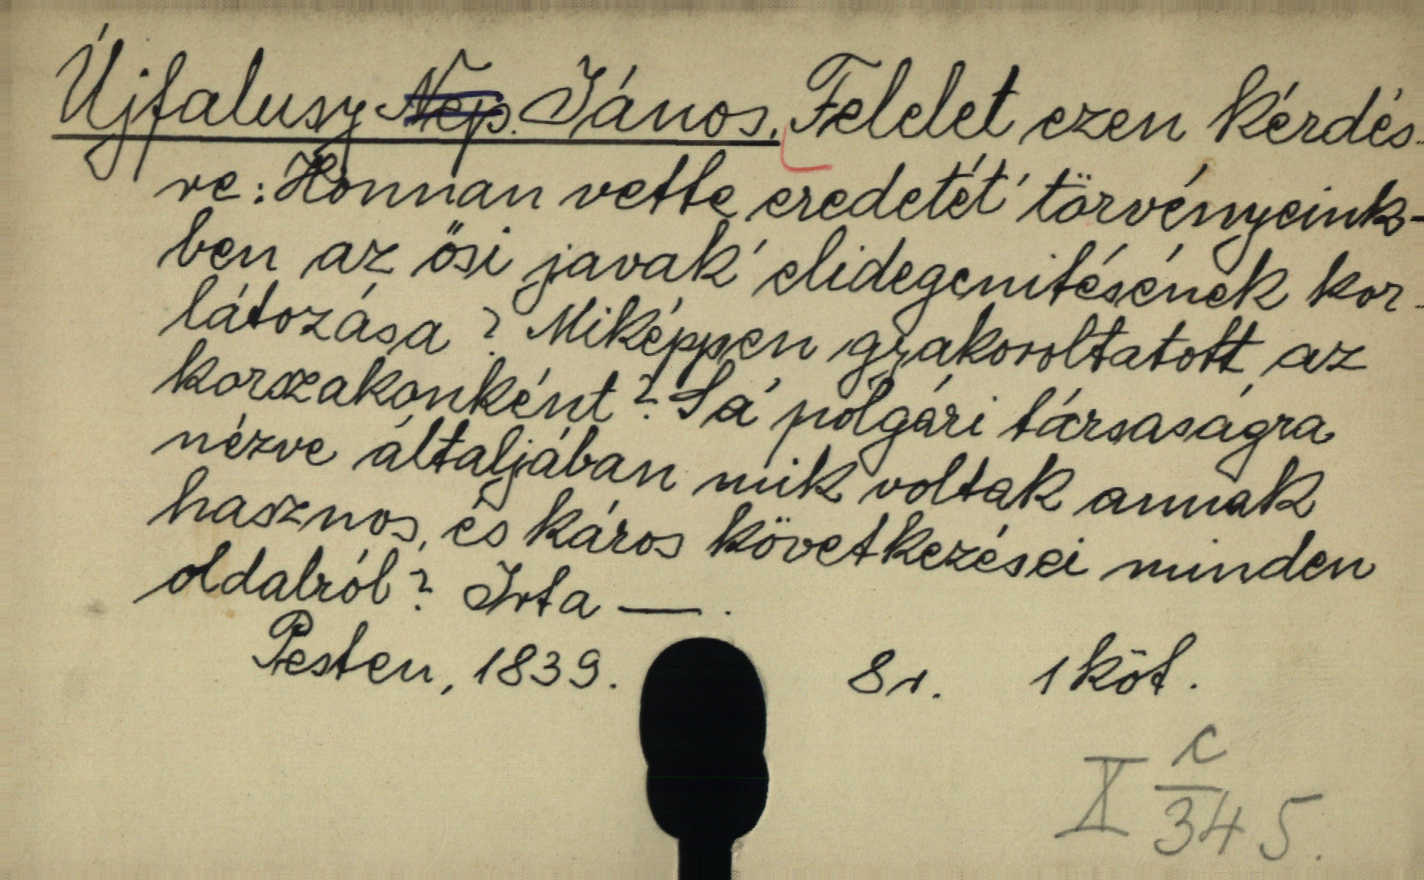 Újfalusy Nep. János. Felelet ezen kérdés-
re: Honnan vette eredetét törvényeink-
ben az ősi javak' elidegenitésének kor-
látozása? Miképpen gyakoroltatott az
korszakonként? S a' polgári társaságra
nézve általjában mik voltak annak
hasznos, és káros következései minden
oldalról? Irta — .
Pesten, 1839. 8r. 1 köt.
X c/345.